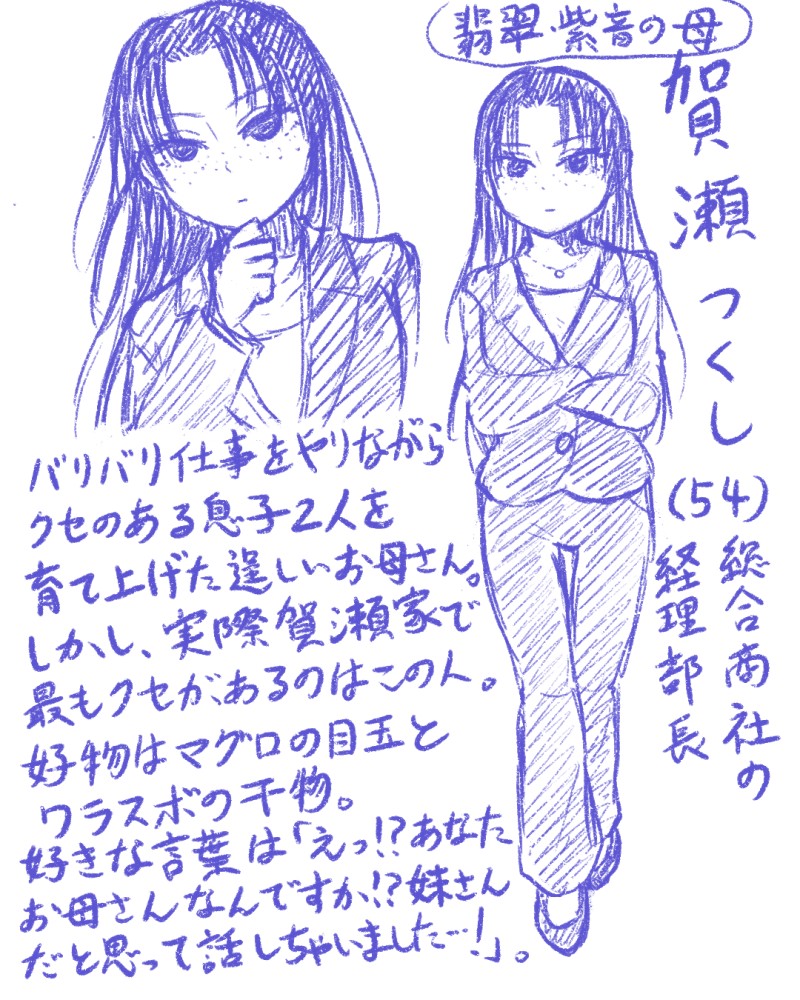 翡翠紫音の母
賀瀬つくし
(54)
総合商社の
経理部長
バリバリ仕事をやりながら
クセのある息子2人を
育て上げた逞しいお母さん。
しかし、実際賀瀬家で
最もクセがあるのはこの人。
好物はマグロの目玉と
ワラスボの干物。
好きな言葉は「えっ!?あなた
お母さんなんですか!?妹さん
だと思って話しちゃいました…!」。